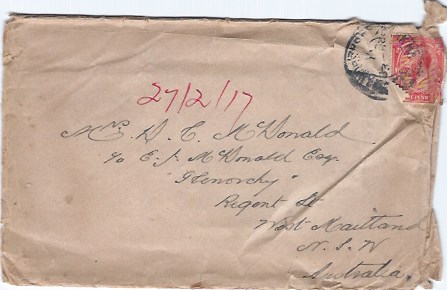 27/2/17
Mrs. D. C. McDonald
c/o E. J. McDonald Esq.
"Glenorchy"
Regent St
West Maitland
N. S. W
Australia.